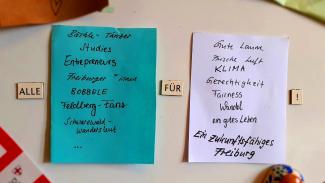 Bächle-Tänzer
Studies
Entrepreneurs
Freiburger*innen
BOBBELE
Feldberg-Fans
Schwarzwald-
Wanderslust
...
ALLE
FÜR
Gute Laune
Frische Luft
KLIMA
Gerechtigkeit
Fairness
Wandel
ein gutes Leben
Ein Zukunftsfähiges
Freiburg
!